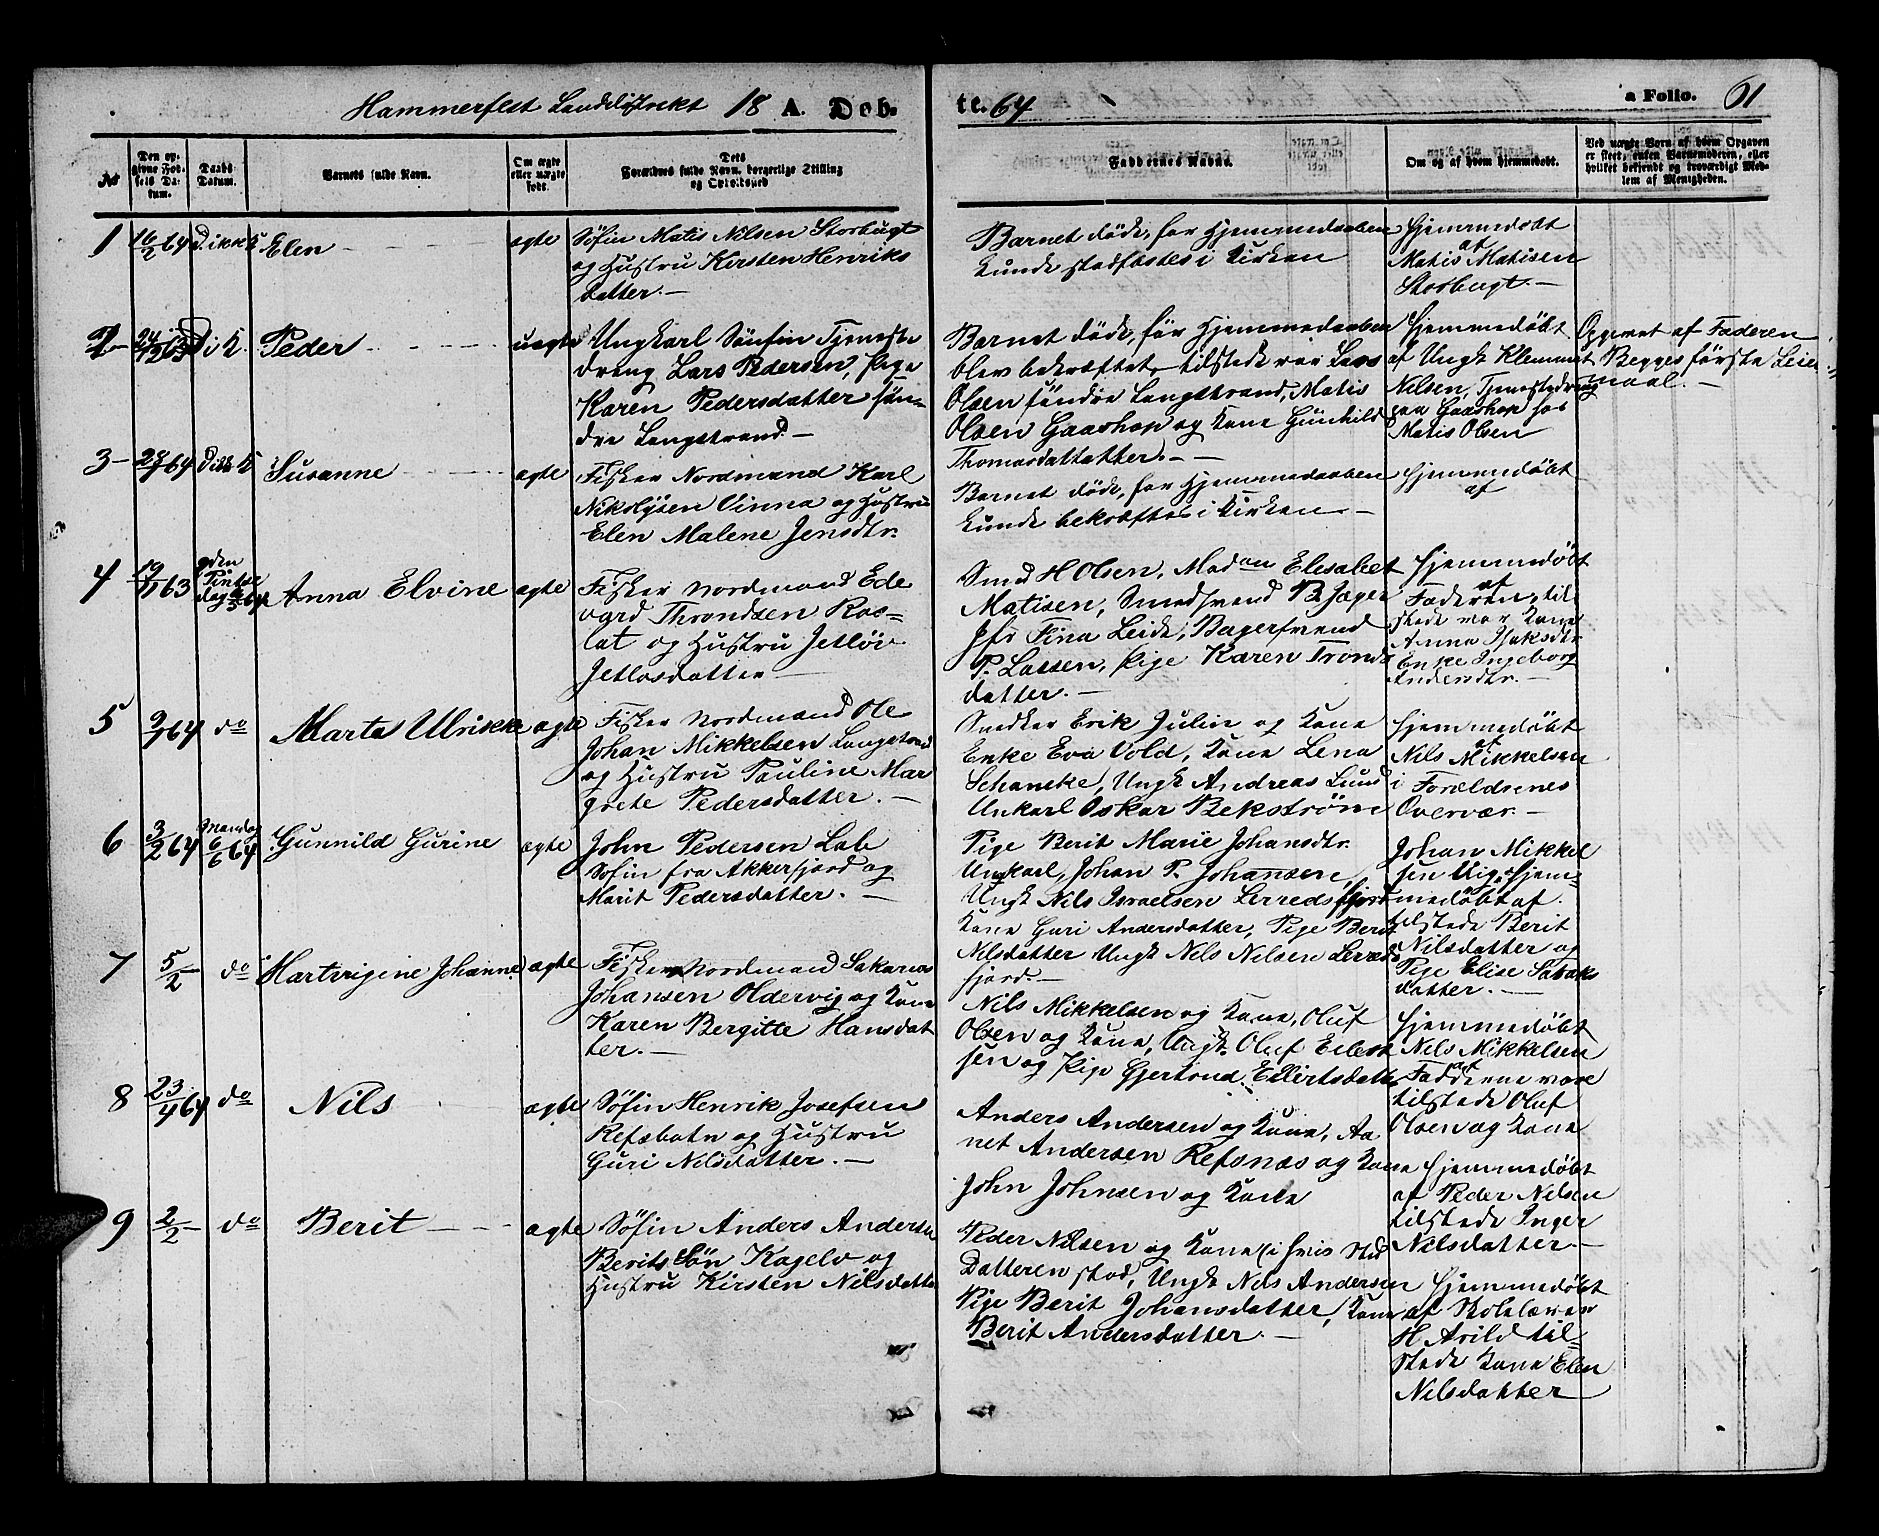 Hammerfest Landdistrikt 18 A. Døb- te. 64 a Folio. 61
No
Den opgivne Fødsels Datum.
Daabs Datum.
Barnets fulde Navn.
Om ægte eller uægte født.
Dets Forældres fulde Navn, borgerlige Stilling og Opholdssted
Faddernes Navne.
Om og af hvem hjemmedøbt.
Ved uægte Børn af hvem Opgaven er skeet, enten Barnemoderen, eller hvilket bekjendt og troværdigt Medlem af Menigheden.
1 16/2 64 Elen ægte
Søfin Matis Nilsen Storbugt
og Hustru Kirsten Henriks
datter.—
Barnet døde, før Hjemmedaaben
kunde stadfæstes i Kirken
Hjemmedøbt
af
Matis Matisen
Storbugt.—
2 Peder uægte
Ungkarl Sønfin Tjeneste
dreng Lars Pedersen, Pige
Karen Pedersdatter søn-
dre Langstrand.—
Barnet døde, før Hjemmedaaben
blev bekræftet, tilstede var Lars
Olsen søndre Langstrand, Matis
Olsen Gaashop og Kone Gunhild
Thomasdattatter.—
Hjemmedøbt
af Ungk Klemmet
Nilsen, Tjenestedreng
paa Gaashop hos
Matis Olsen
Opgivet af Faderen
Begges første Leier-
maal.—
3 64 Susanne ægte
Fisker Nordmand Karl
Nikolysen Vinna og Hustru
Elen Malene Jensdtr.
Barnet døde, før Hjemmedaaben
kunde bekræftes i Kirken.—
Hjemmedøbt
af
4 19/11 63 2den Pintse dag 64 Anna Elvine ægte
Fisker Nordmand Ede
vard Throndsen Ros-
lat og Hustru Jetløv
Jetlosdatter—
Smed H Olsen, Madam Elisabet
Matisen, Smedsvend B. Jæger
Jfr Fina Leide, Bagersvend
P. Lassen, Pige Karen Tronds
datter.—
Hjemmedøbt
af
Faderen, til-
stede var Kone
Anna Isaksdtr
Enke Ingeborg
Andersdtr.—
5 64 do Marta Ulrikke ægte
Fisker Nordmand Ole
Johan Mikkelsen Langstrand
og Hustru Pauline Mar
grete Pedersdatter.—
Snedker Erik Julin og Kone
Enke Eva Vold, Kone Lena
Schancke, Ungk Andreas Lund
Unkarl Oskar Bekstrøm
Hjemmedøbt
af
Nils Mikkelsen
i Forældrenes
Overvær.—
6 3/2 64 Mandag 6/6 64 Gunnild Gurine ægte
John Pedersen Lab
Søfin fra Akkerfjord og
Marit Pedersdatter.—
Pige Berit Marie Johansdtr.
Ungkarl, Johan P. Johansen,
Ungk Nils Israelsen Lerredsfjord
Kone Guri Andersdatter, Pige Berit
Nilsdatter Ungk Nels Nelsen Lerreds
fjord.—
Johan Mikkel
sen Hjem-
medøbt af.
tilstede Berit
Nilsdatter og
Pige Elise
datter.—
7 5/2 do Hartvigine Johanne ægte
Fisker Nordmand Sakarias
Johansen Oldervig og Kone
Karen Bergitte Hansdat
ter.—
Nils Mikkelsen og Kone, Oluf
Olsen og Kone, Ungk. Oluf Eilert
sen og Pige Gjertrud Eilertsdatter
Hjemmedøbt
Nils Mikkelsen
af
Fadderne vare
tilstede Oluf
Olsen og Kone
8 23/4 64 do Nils ægte
Søfin Henrik Josefsen
Refsbotn og Hustru
Guri Nilsdatter.—
Anders Andersen og Kone, An
net Andersen Refsnæs og Kone
John Johnsen og Kone
Hjemmedøbt
af Peder Nilsen
tilstede Inger
Nilsdatter.—
9 2/2 do Berit ægte
Søfin Anders Andersen
Berits Søn Kagelv og
Hustru Kirsten Nilsdatter
Peder Nilsen og Kone (i hvis Sted
Datteren stod, Ungk Nils Andersen
Pige Berit Johansdatter, Kone
Berit Andersdatter.—
Hjemmedøbt
af Skolelærer
H Arild til-
stede Kone Elen
Nilsdatter